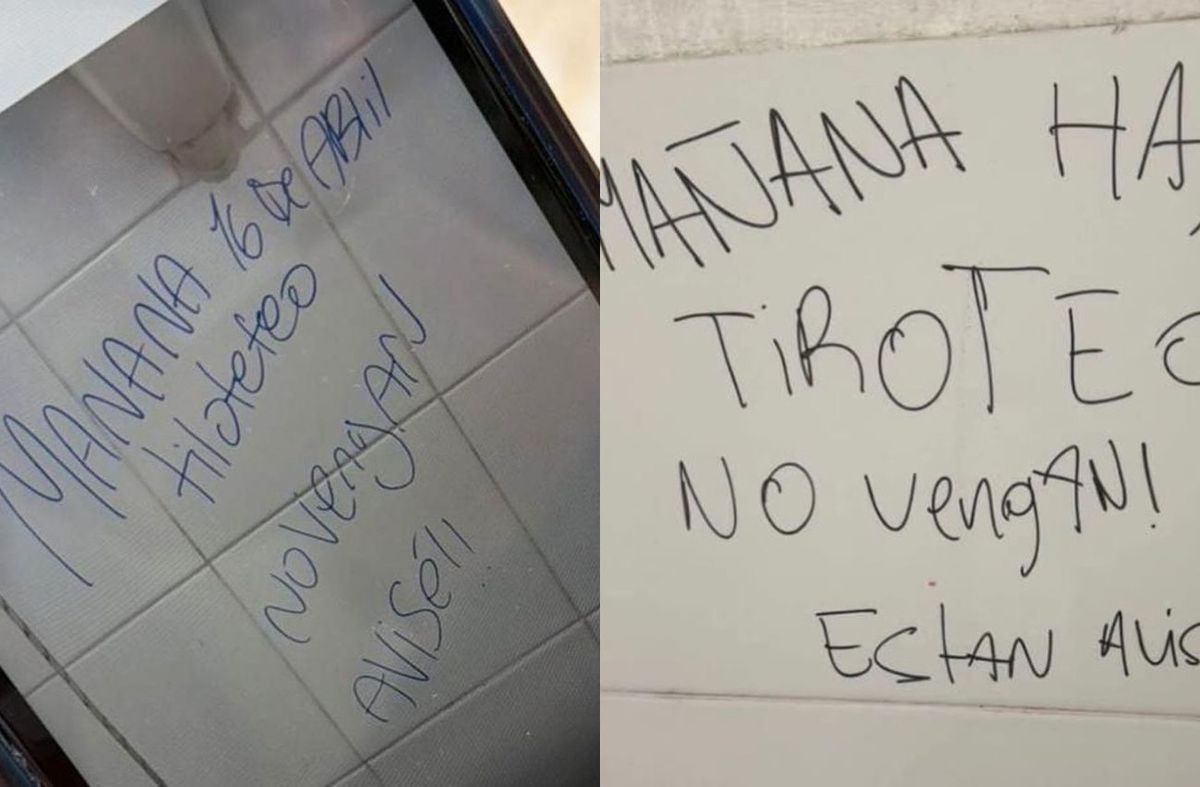 MAÑANA 16 De ABRil
tiroteo
NO VengAN
AViSé!!
MAÑANA HA
TiROTEO
NO VengAN!
EstAN AVis